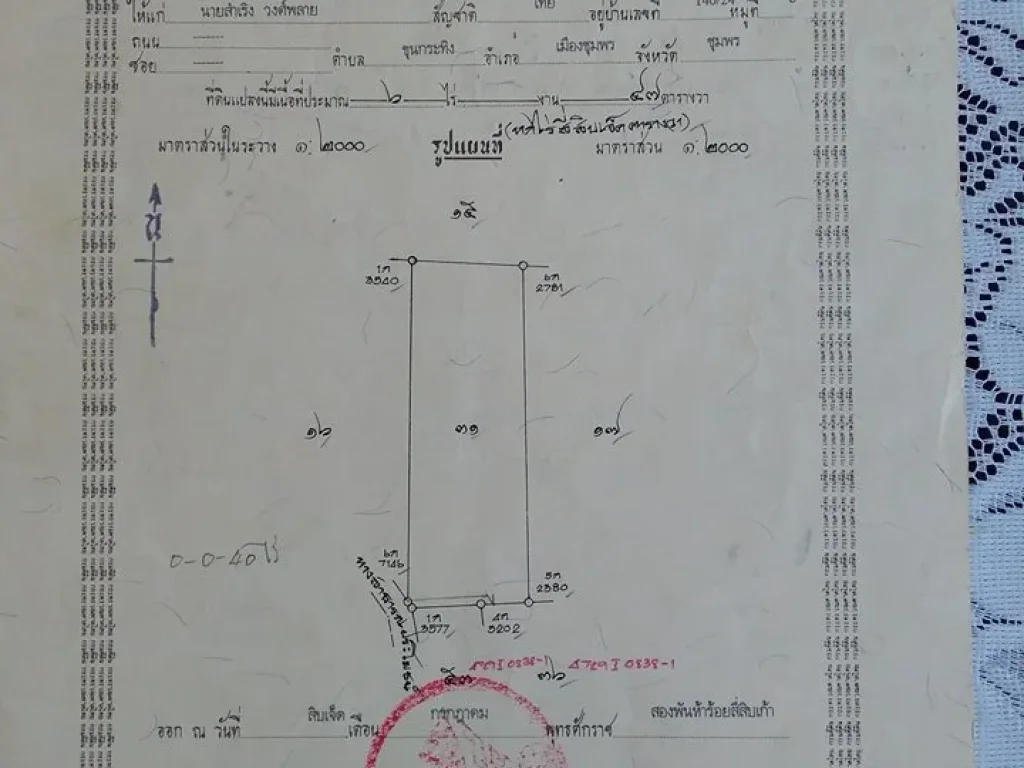 ให้แก่ นายสำเริง วงศ์พลาย สัญชาติ ไทย อยู่บ้านเลขที่ 146/24 หมู่ที่
ถนน
ซอย ตำบล ขุนกระทิง อำเภอ เมืองชุมพร จังหวัด ชุมพร
ที่ดินแปลงนี้มีเนื้อที่ประมาณ ๖ ไร่ งาน ๔๗ ตารางวา
(หกไร่สี่สิบเจ็ดตารางวา)
มาตราส่วนในระวาง ๑:๒๐๐๐ รูปแผนที่ มาตราส่วน ๑:๒๐๐๐
น
๑๕
1ก 3540
6ก 2781
๑๖ ๓๑ ๑๗
0-0-40 ไร่
6ก 7146
5ก 2380
1ก 3577
4ก 3202
ทางสาธารณประโยชน์
0838-1 0838-1
๕๓ ๓๖
ออก ณ วันที่ สิบเจ็ด เดือน กรกฎาคม พุทธศักราช สองพันห้าร้อยสี่สิบเก้า